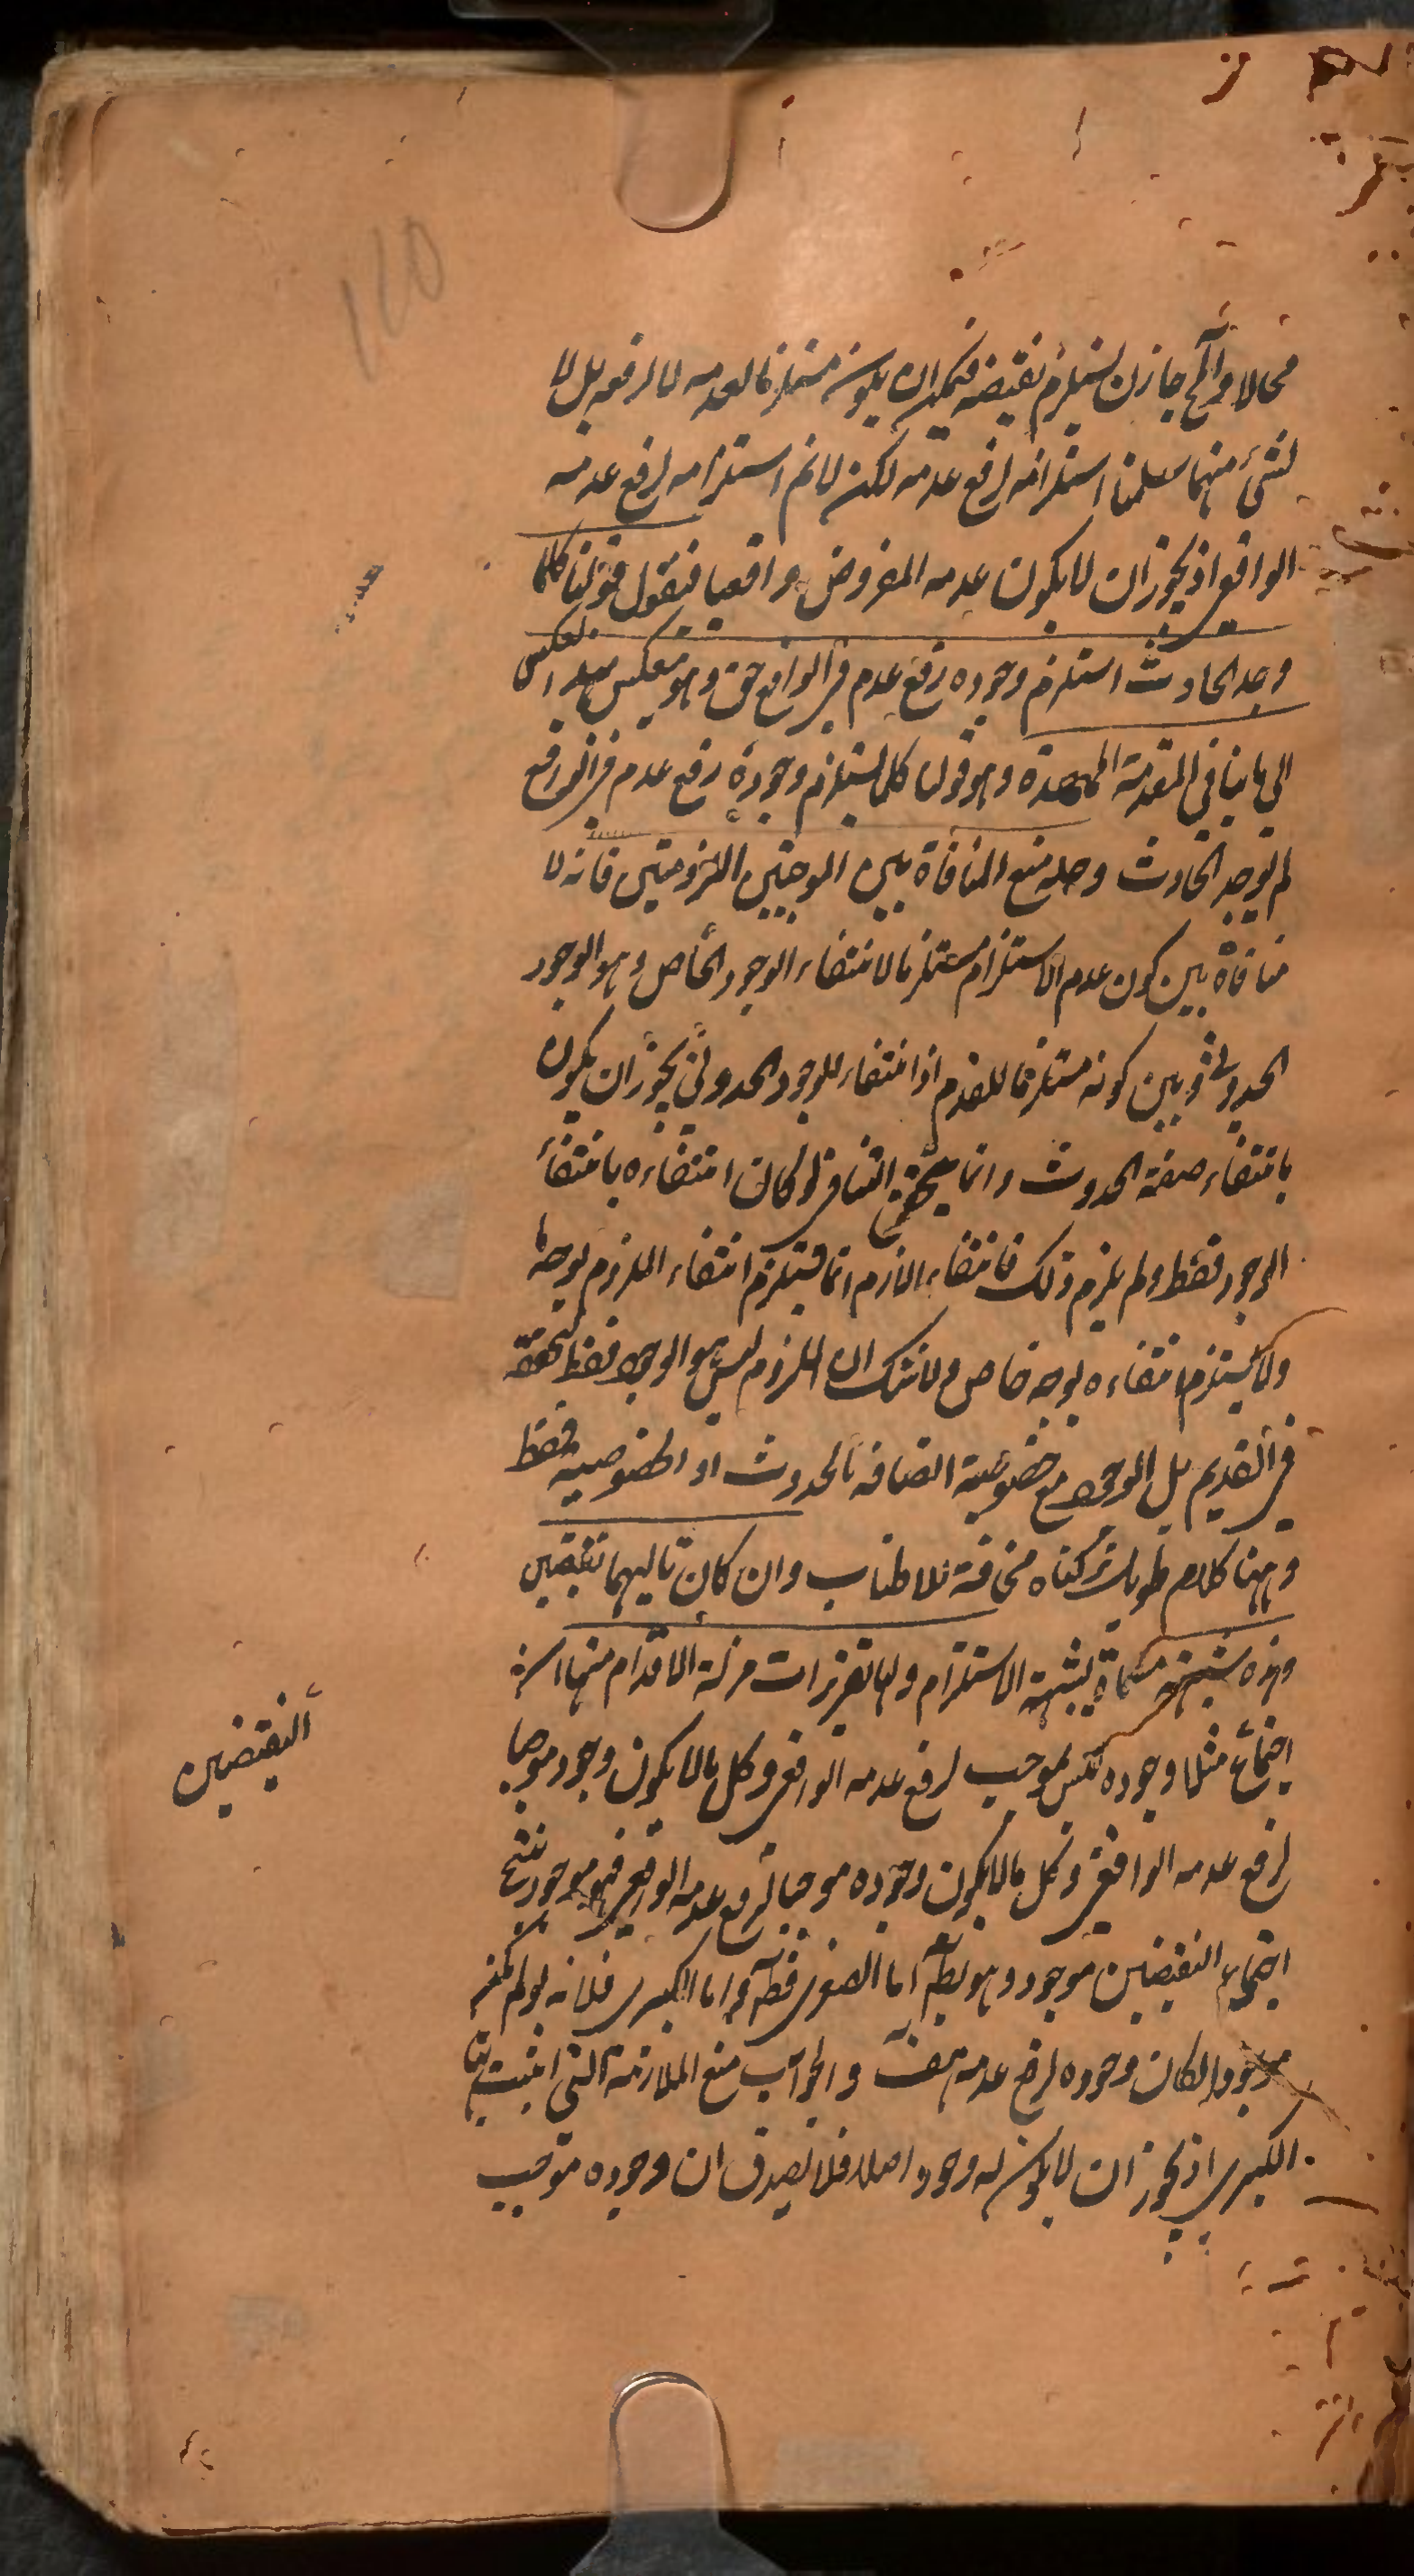 محالا والمح جاز ان يستلزم نقيضه فيمكن ان يكون مستلزما لعدمه لا لرفعه بل لا
لشئ منهما سلمنا استلزامه لرفع عدمه لكن لانم استلزامه لرفع عدمه
الواقعي اذ يجوز ان لا يكون عدمه المفروض واقعيا فنقول قولنا كلما
وجد الحادث استلزم وجوده رفع عدم في الواقع حق وهو منعكس بعكس
الى ما ينافي المقدمة الممهدة وهو قولنا كلما لم يستلزم وجوده رفع عدم في الواقع
لم يوجد الحادث وحله منع المنافاة بين الموجبتين اللزوميتين فانه لا
منافاة بين كون عدم الاستلزام مستلزما لانتفاء الوجود الخاص وهو الوجود
الحدوثي وبين كونه مستلزما للقدم اذ انتفاء الوجود الحدوثي يجوز ان يكون
بانتفاء صفة الحدوث وانما يتحقق التنافي لو كان انتفاءه بانتفاء
الوجود فقط ولم يلزم ذلك فانتفاء اللازم انما يستلزم انتفاء الملزوم بوجه ما
ولا يستلزم انتفاءه بوجه خاص ولا شك ان الملزوم ليس هو الوجود فقط لتحققه
في القديم بل الوجود مع خصوصية اتصافه بالحدوث او الخصوصية فقط
وههنا كلام طويل تركناه مخافة للاطناب وان كان تاليهما نقيضين
وهذه شبهة مسماة بشبهة الاستلزام ولها تقريرات مزلة الاقدام منها انه
اجتماع مثلا وجوده ليس بموجب لرفع عدمه الواقعي وكل ما لا يكون وجود موجبا
النقيضين
لرفع عدمه الواقعي وكل ما لا يكون وجوده موجبا لرفع عدمه الواقعي فهو موجود ينتج
اجتماع النقيضين موجود وهو بط اما الصغرى فظ واما الكبرى فلانه لو لم يكن
موجودا لكان وجوده لرفع عدمه هف والجواب منع الملازمة التي اثبت بها
الكبرى اذ يجوز ان لا يكون له وجود اصلا فلا يصدق ان وجوده موجب